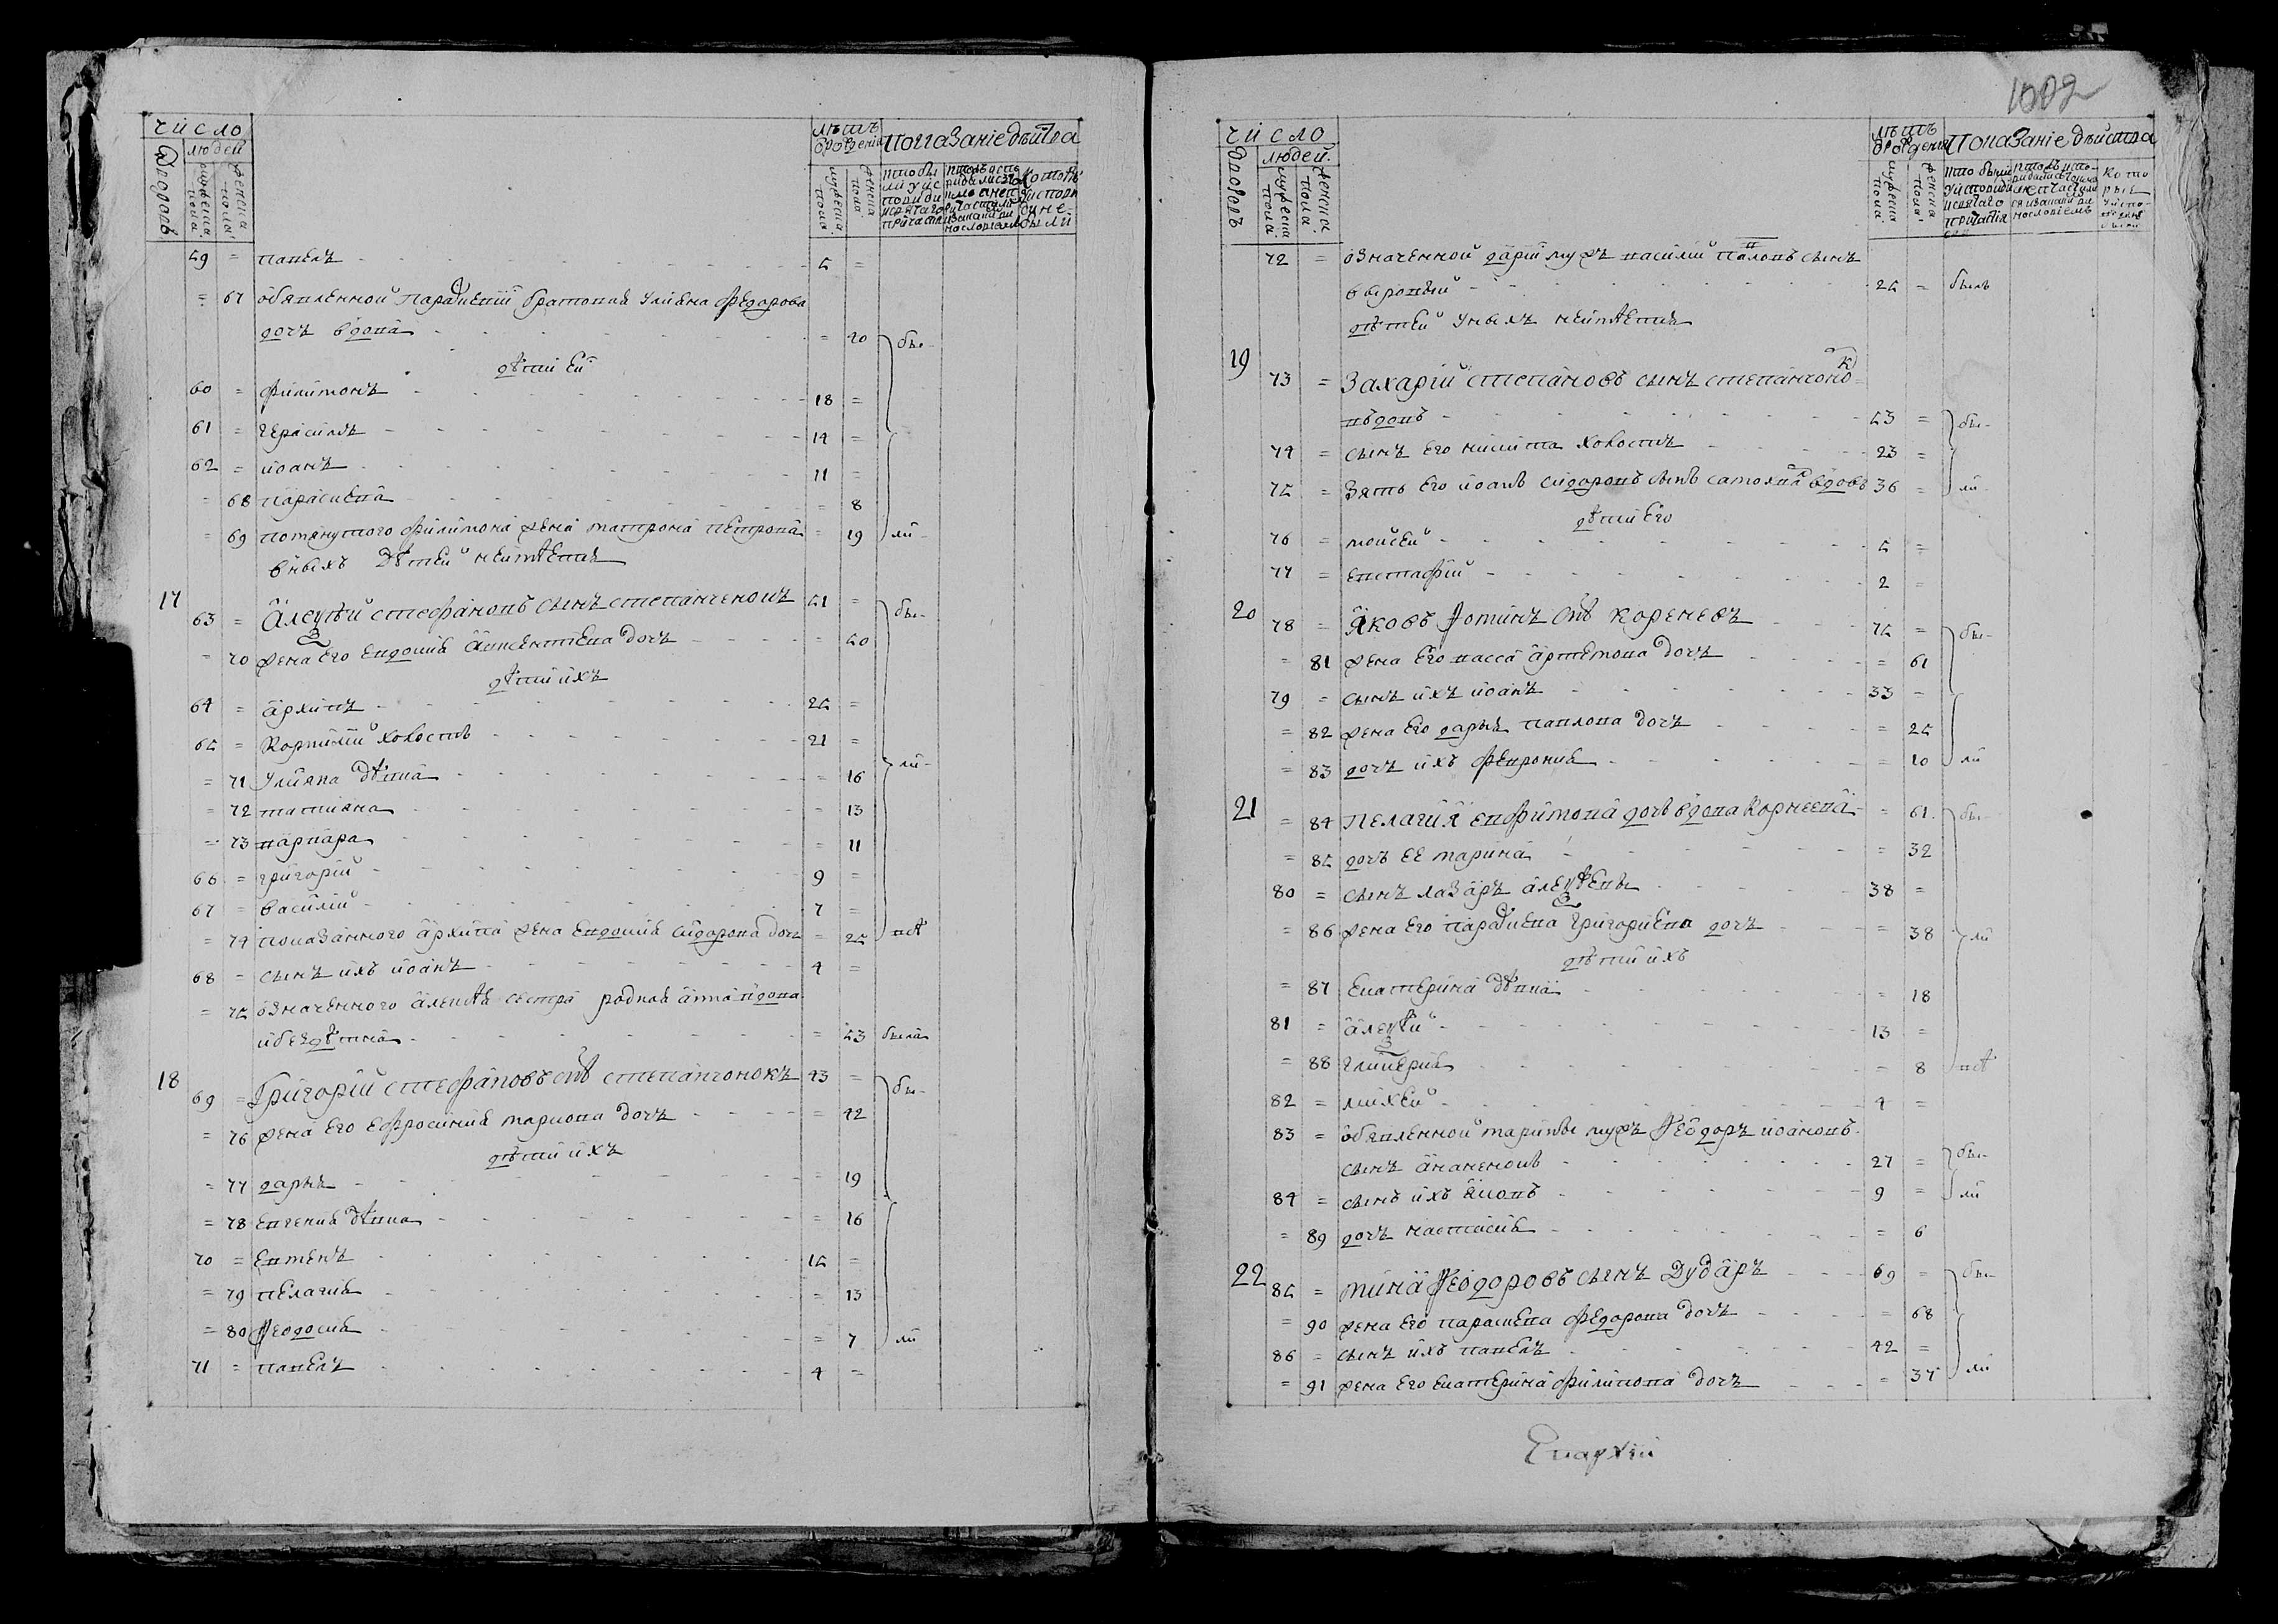 1002
число
людей
Дворовъ
мужеска пола
женска пола
лѣтъ от рожденія
мужеска пола
женска пола
Показаніе дѣйства
59 = Павелъ 5 =
= 67 объявленной Параскевіи братовая Улияна Федорова
дочь вдова = 70 бы-
дѣти ей
60 = Филимонъ 18 =
61 = Герасимъ 14 =
62 = Иоанъ 11 =
= 68 Параскева = 8
= 69 помянутого Филимона жена Матрона Петрова = 19 ли
в ных дѣтей неимѣетця
17 63 = Алексѣй Стефановъ сынъ Степанченокъ 51 = бы-
= 70 жена его Евдокия Авксентиева дочь = 50
дѣти ихъ
64 = Архипъ 25 =
65 = Корнилий холостъ 21 =
= 71 Улияна дѣвка = 16 ли-
= 72 Татияна = 13
= 73 Варвара = 11
66 = Григорий 9 =
67 = Василий 7 =
= 74 показанного Архипа жена Евдокия Сидорова дочь = 25 всѣ
68 = сынъ ихъ Иоанъ 4 =
= 75 означенного Алексѣя сестра родная Анна вдова
и бездѣтна = 53 была
18 69 = Григорий Стефановъ снъ Степанчонокъ 43 = бы-
= 76 жена его Ефросиния Маркова дочь = 42
дѣти ихъ
= 77 Дарья = 19
= 78 Евгения дѣвка = 16
70 = Евтенъ 15 =
= 79 Пелагия = 13
= 80 Феодосия = 7 ли
71 = Павелъ 4 =
число
людей
Дворовъ
мужеска пола
женска пола
лѣтъ от рожденія
мужеска пола
женска пола
Показаніе дѣйства
72 = означенной Дарии мужъ Василий Павловъ сынъ
25 = былъ
дѣтей у ных неимѣетця
19 73 = Захарий Степановъ сынъ Степанчонокъ
вдовъ 53 = бы-
74 = сынъ его Никита холостъ 23 =
75 = зять его Иоанъ Сидоровъ сынъ вдовъ 36 = ли
дѣти его
76 = Моисей 5 =
77 = Евстафий 2 =
20 78 = Яковъ Фоминъ снъ Кореневъ 75 = бы-
= 81 жена его Васса Артемова дочь = 61
79 = сынъ ихъ Иоанъ 33 =
= 82 жена его Дарья Павлова дочь = 25
= 83 дочь ихъ Феврония = 10 ли
21 = 84 Пелагия Евфимова дочь вдова Корнеева = 61 бы-
= 85 дочь ее Марина = 32
80 = сынъ Лазарь Алексѣевъ 38 =
= 86 жена его Параскева Григориева дочь = 38 ли
дѣти ихъ
= 87 Екатерина дѣвка = 18
81 = Алексѣй 13 =
= 88 Гликерия = 8 всѣ
82 = Михей 4 =
83 = объявленной Марины мужъ Феодоръ Иоановъ
сынъ Ананенокъ 27 = бы-
84 = сынъ ихъ Яковъ 9 = ли
= 89 дочь Настасия = 6
22 85 = Мина Феодоровъ сынъ Дударъ 69 = бы-
= 90 жена его Параскева Федорова дочь = 68
86 = сынъ ихъ Павелъ 42 =
= 91 жена его Екатерина Филипова дочь = 37 ли
Епархіи